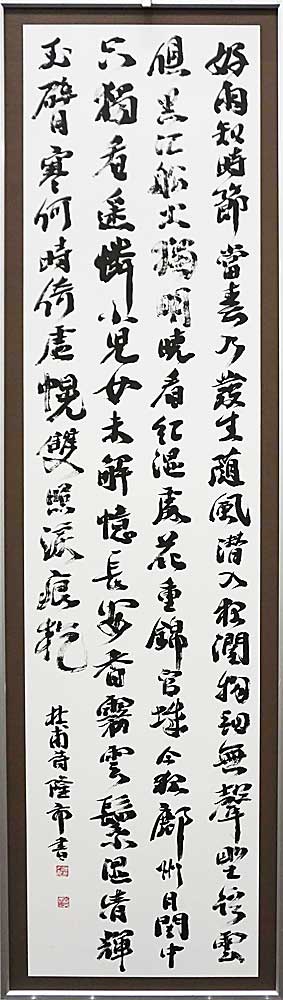 好雨知時節當春乃發生随風潜入夜潤物細無聲野径雲
俱黒江船火獨明暁看紅湿處花重錦官城今夜鄜州月閨中
只獨看遥憐小児女未解憶長安香霧雲鬟湿清輝
玉臂寒何時倚虚幌雙照涙痕乾
杜甫詩隆 書